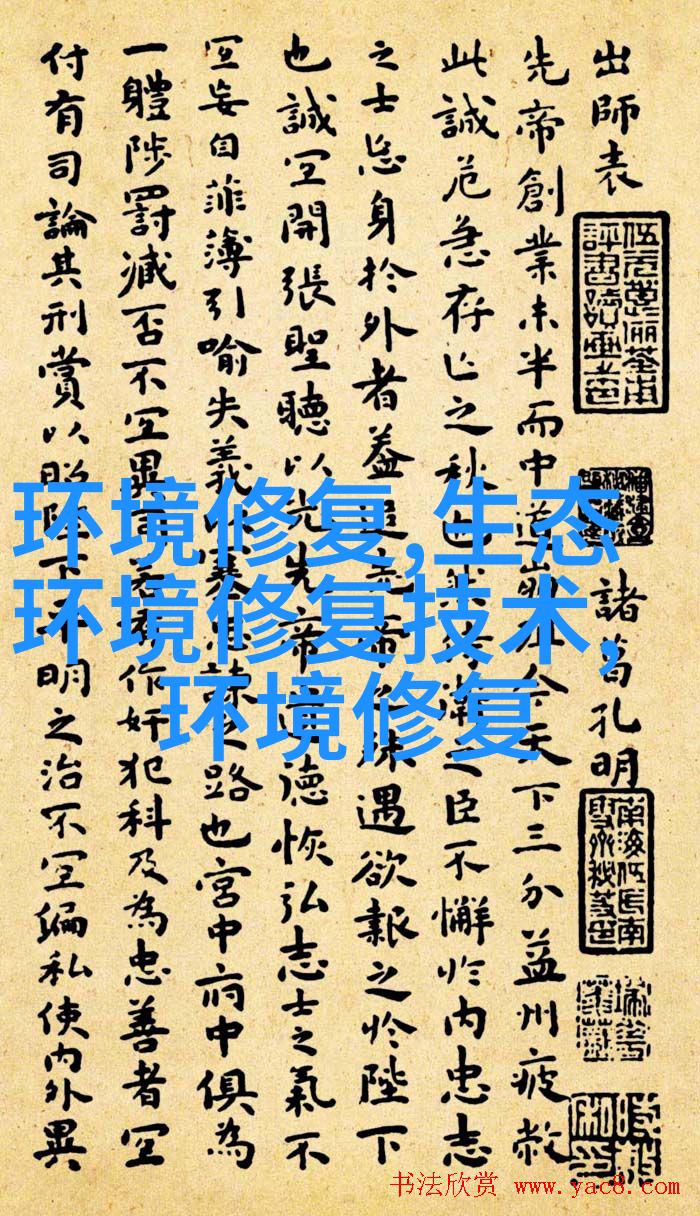 出師表
諸葛孔明
先帝創業未半而中道崩今天下三分益州疲敝
此誠危急存亡之秋也然侍衛之臣不懈於內忠志
之士忘身於外者蓋追先帝之殊遇欲報之於陛下
也誠宜開張聖聽以光先帝遺德恢弘志士之氣不
宜妄自菲薄引喻失義以塞忠諫之路也宮中府中俱為
一體陟罰臧否不宜異同若有作奸犯科及為忠善者宜
付有司論其刑賞以昭陛下平明之治不宜偏私使內外異
环境修复,生态
环境修复技术,
环境修复
书法欣赏 www.yac8.com